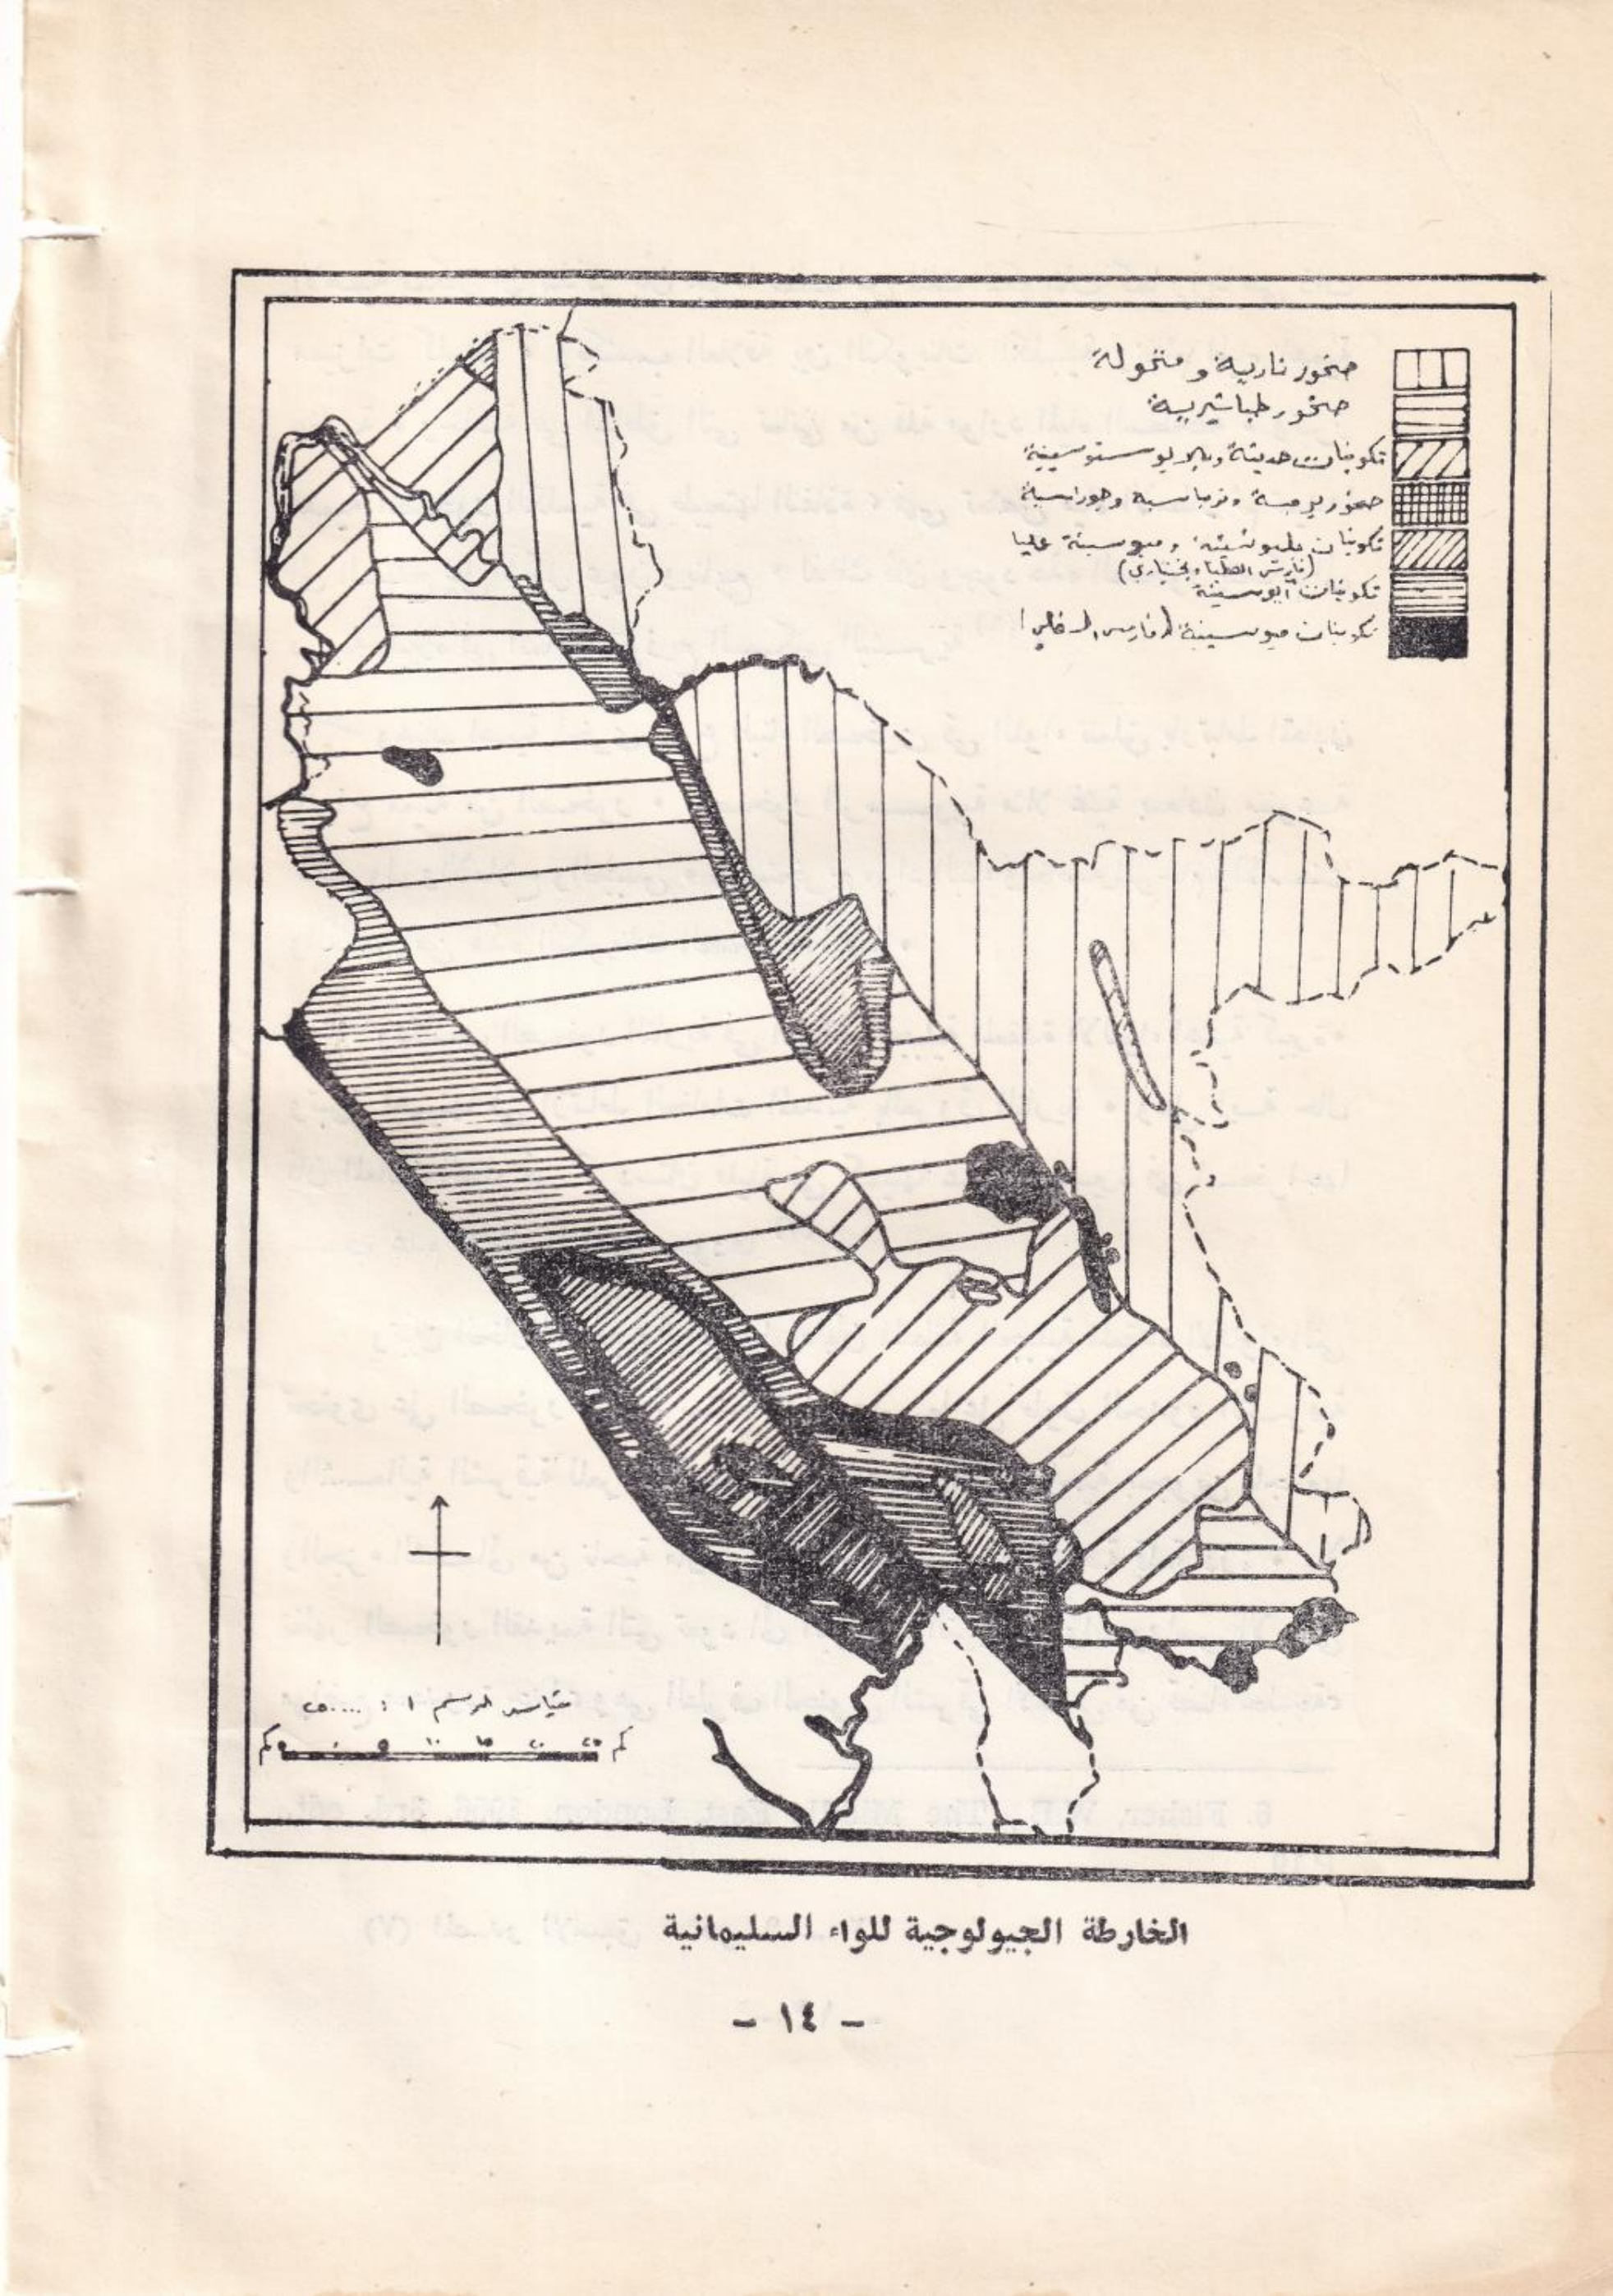 صخور نارية و متحولة
صخور طباشيرية
تكوينات حديثة وبلايوستوسينية
صخور برمية وترياسية وجوراسية
تكوينات بليوسينية وميوسينية عليا
(فارس العليا وبختياري)
تكوينات ايوسينية
تكوينات ميوسينية (فارس
مقياس الرسم ١ :
كم ٥ ٠ ٥ ١٠ ١٥ ٢٠ ٢٥ كم
الخارطة الجيولوجية للواء السليمانية
- ١٤ -